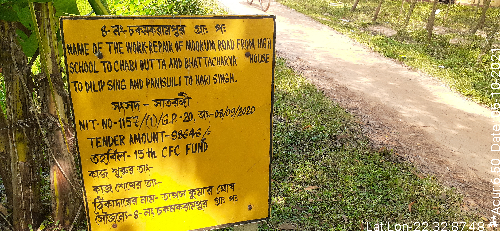 ৪-নং-চকমকরামপুর গ্রাঃ পঃ
NAME OF THE WORK-REPAIR OF MOORUM ROAD FROM HIGH
SCHOOL TO CHABI DUTTA AND BHATTACHARYA HOUSE
TO DILIP SING AND PANISIULI TO HARI SINGH.
সংসদ - সাতবন্টী
NIT-NO-115 /(1)/G.P-20, তাং-08/09/2020
TENDER AMOUNT-98646/-
তহবিল- 15th CFC FUND
কাজ শুরুর তাং-
কাজ শেষের তাং-
ঠিকাদারের নাম- তাপস কুমার ঘোষ
সৌজন্যে:- ৪-নং চকমকরামপুর গ্রাঃ পঃ
Lat Lon